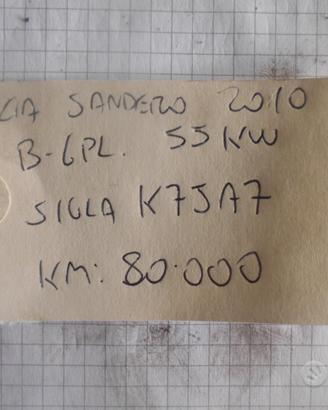 CIA SANDERO 2010
B-GPL. 55 KW
SIGLA K7JA7
KM: 80.000